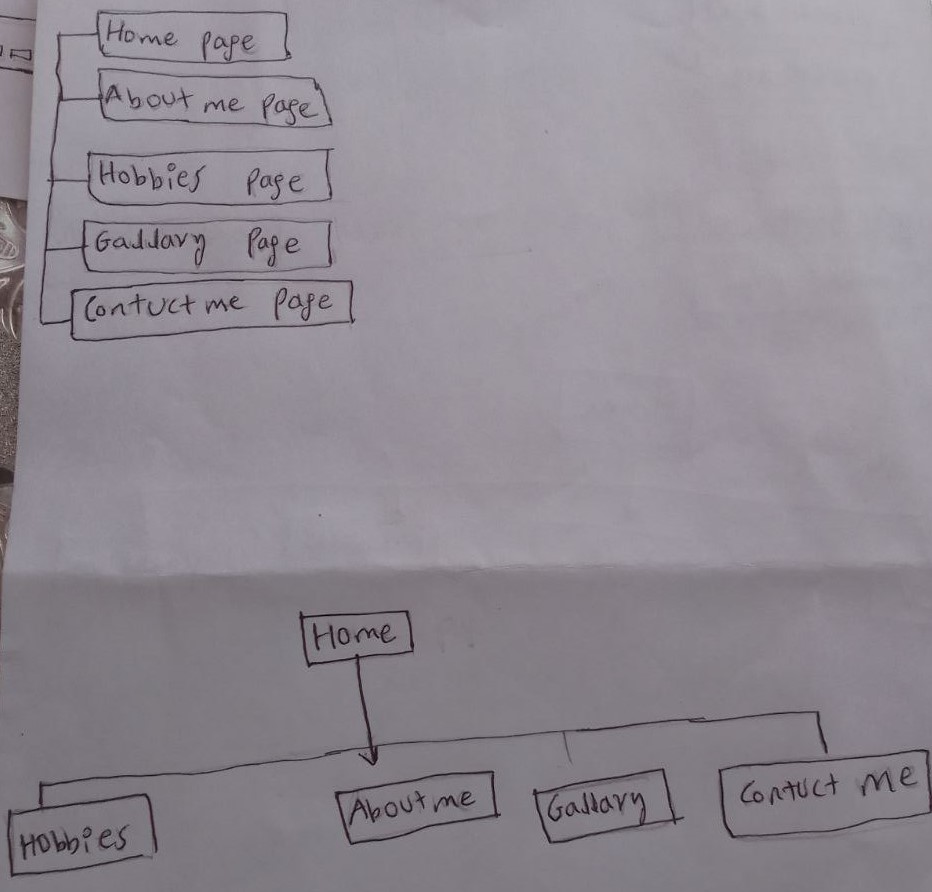 Home page
About me page
Hobbies page
Gallary page
Contuct me page
Home
Hobbies
About me
Gallary
Contuct me